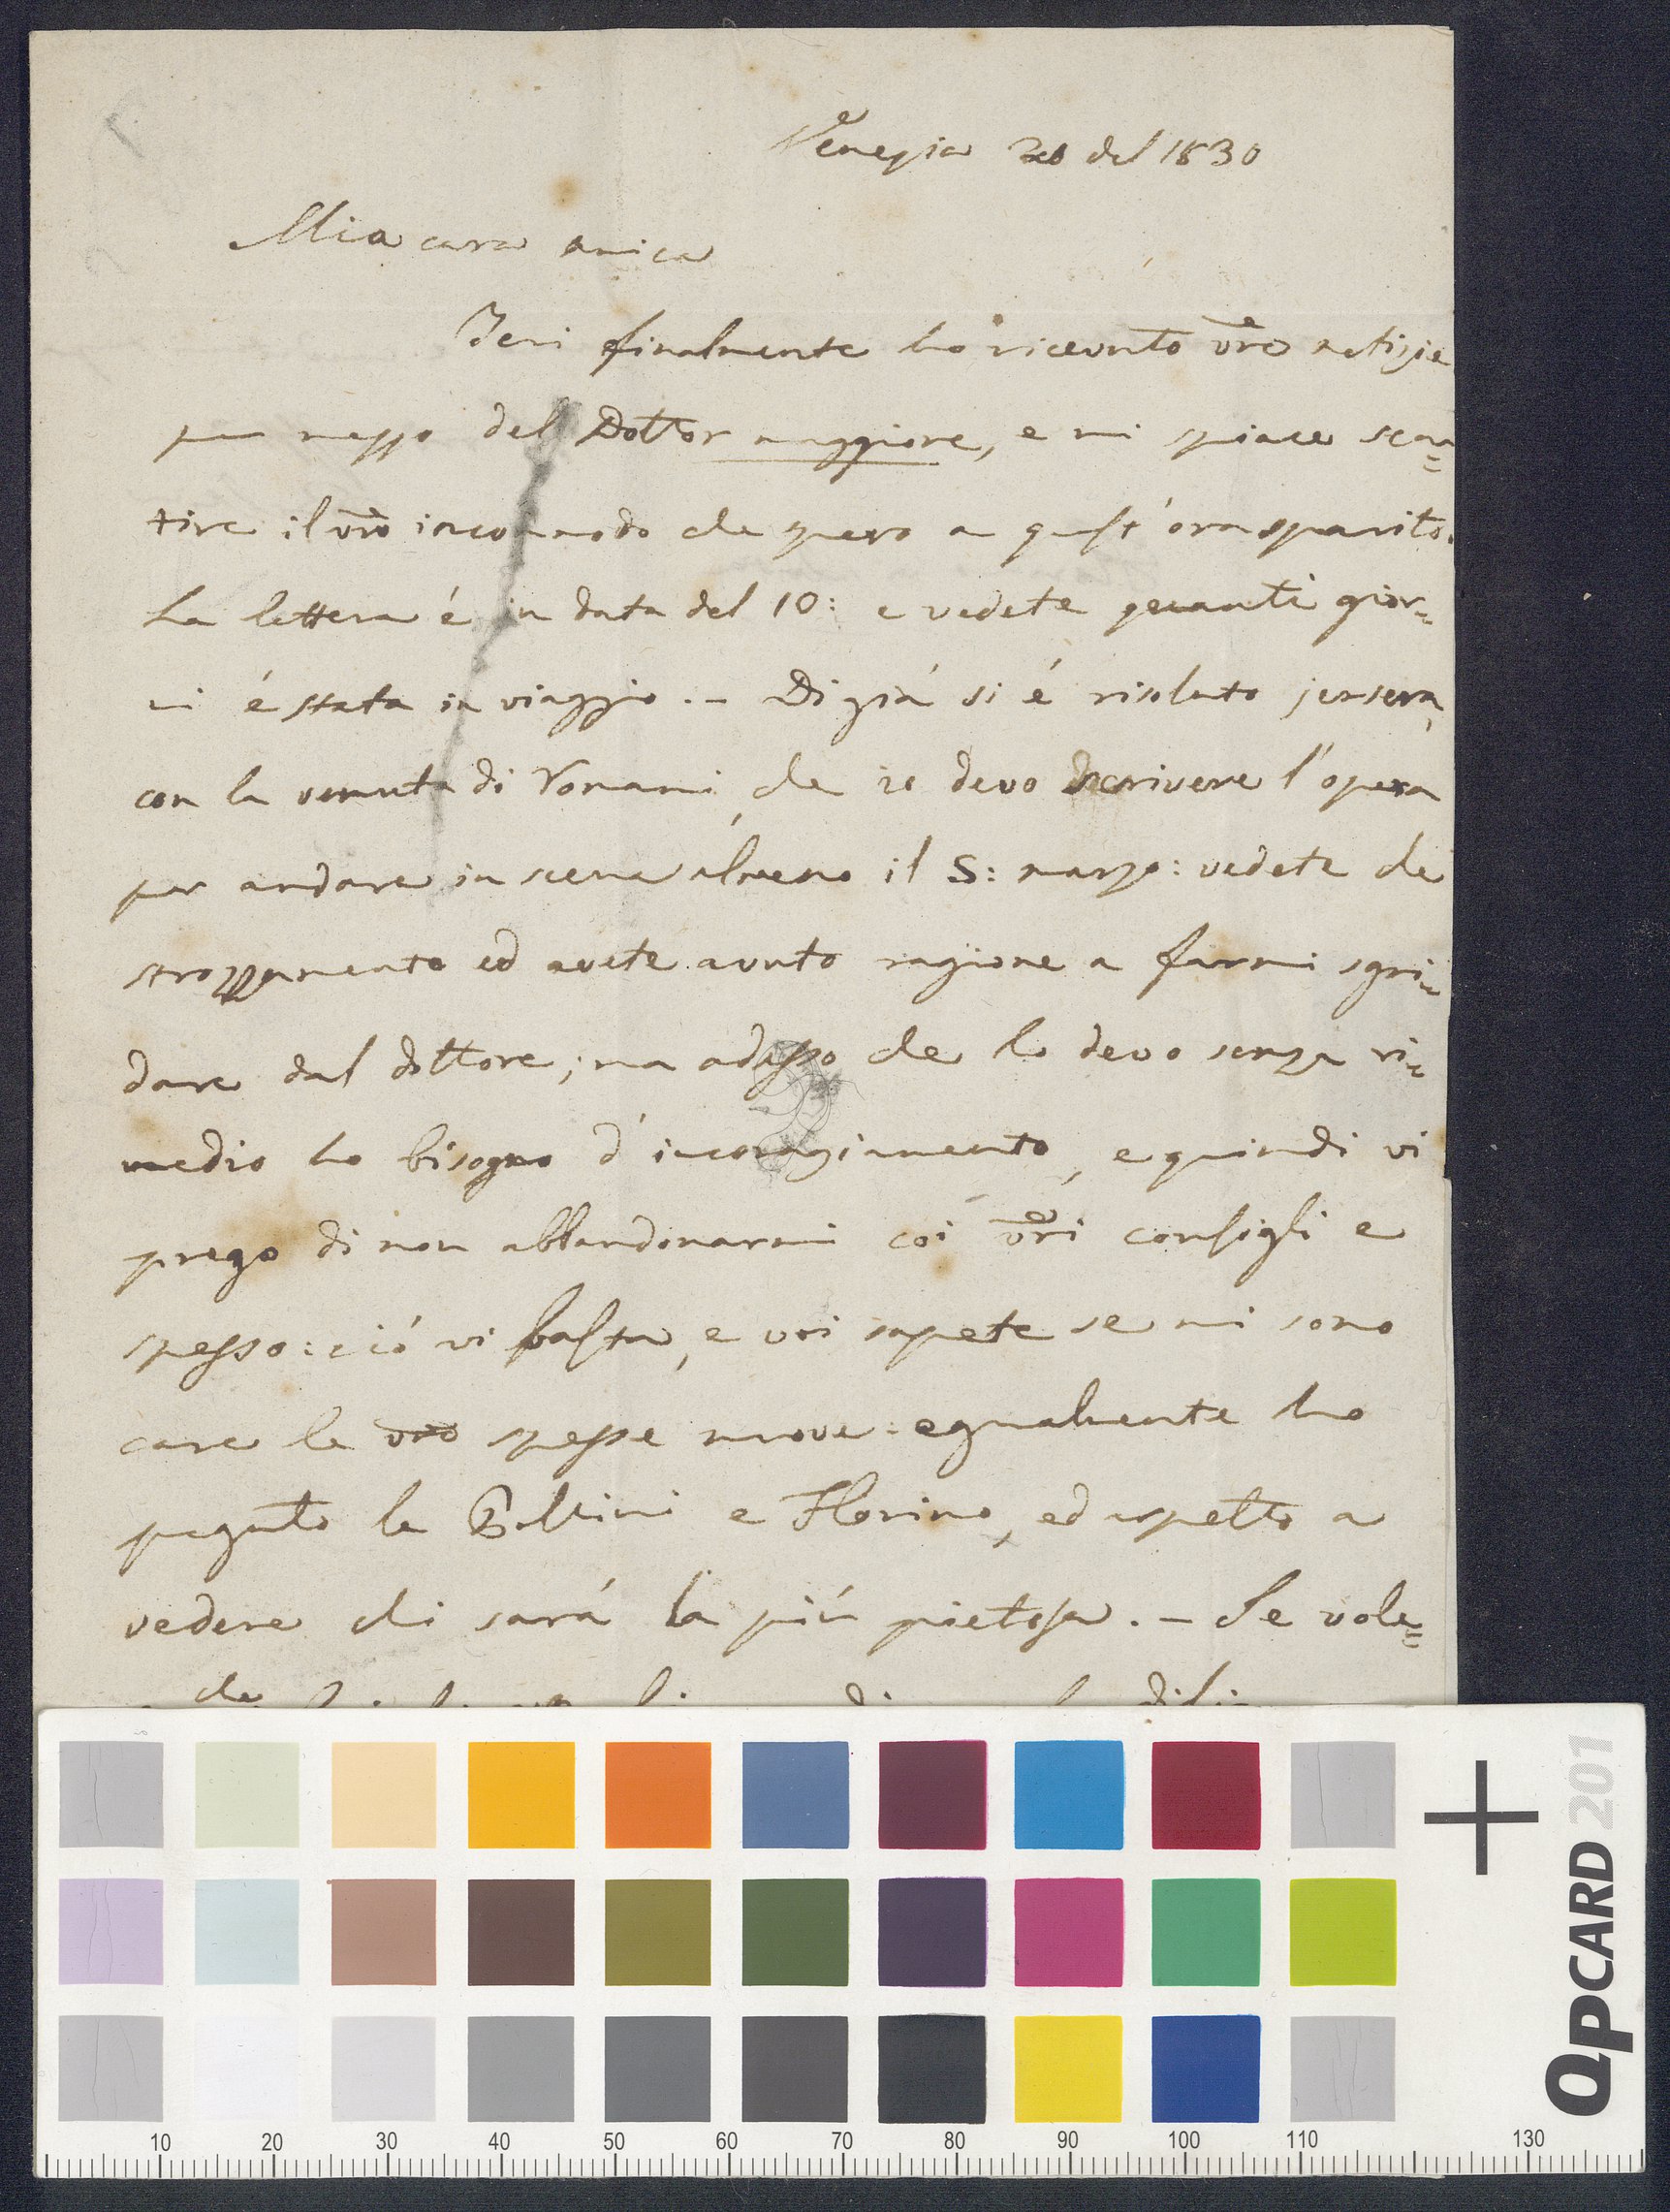 Venezia 20 del 1830
Mia cara amica
Jeri finalmente ho ricevuto vre notizie
per mezzo del Dottor maggiore, e mi spiace sen=
tire il vro incommodo che spero a quest'ora sparito.
La lettera é in data del 10: e vedete quanti gior=
ni é stata in viaggio. – Di giá si é risoluto jersera,
con la venuta di Romani, che io devo scrivere l'opera
per andare in scena almeno il 5: marzo: vedete che
strozzamento ed avete avuto ragione a farmi sgri=
dare dal dottore; ma adesso che lo devo senza ri=
medio ho bisogno d'incoragiamento, e quindi vi
prego di non abbandonarmi coi vri consigli e
spesso: ció vi basta, e voi sapete se mi sono
care le vre spesse nuove: egualmente ho
pregato la Pollini e Florimo, ed aspetto a
vedere chi sará la piú pietosa. – Se vole=
QPCARD 201
10 20 30 40 50 60 70 80 90 100 110 130